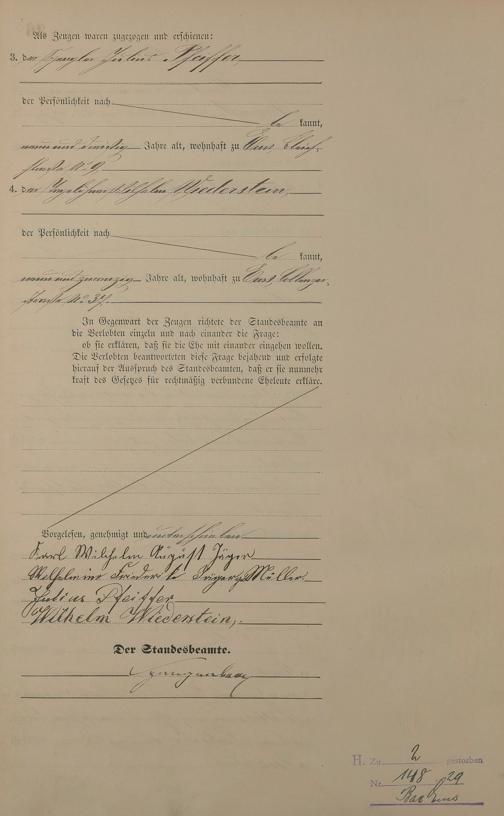 Als Zeugen waren zugezogen und erschienen:
3. der Julius Pfeiffer,
der Persönlichkeit nach
be kannt,
neun und dreißig Jahre alt, wohnhaft zu Ems,
straße No 9
4. der Wilhelm Wiederstein,
der Persönlichkeit nach
be kannt,
neun und zwanzig Jahre alt, wohnhaft zu Ems,
straße No 37.
In Gegenwart der Zeugen richtete der Standesbeamte an
die Verlobten einzeln und nach einander die Frage:
ob sie erklären, daß sie die Ehe mit einander eingehen wollen.
Die Verlobten beantworteten diese Frage bejahend und erfolgte
hierauf der Ausspruch des Standesbeamten, daß er sie nunmehr
kraft des Gesetzes für rechtmäßig verbundene Eheleute erkläre.
Vorgelesen, genehmigt und unterschrieben
Karl Wilhelm August Jäger
Wilhelmine Jäger Müller
Julius Pfeiffer
Wilhelm Wiederstein,.
Der Standesbeamte.
H. Zu 2 gestorben
Nr. 148 / 29
Bad Ems